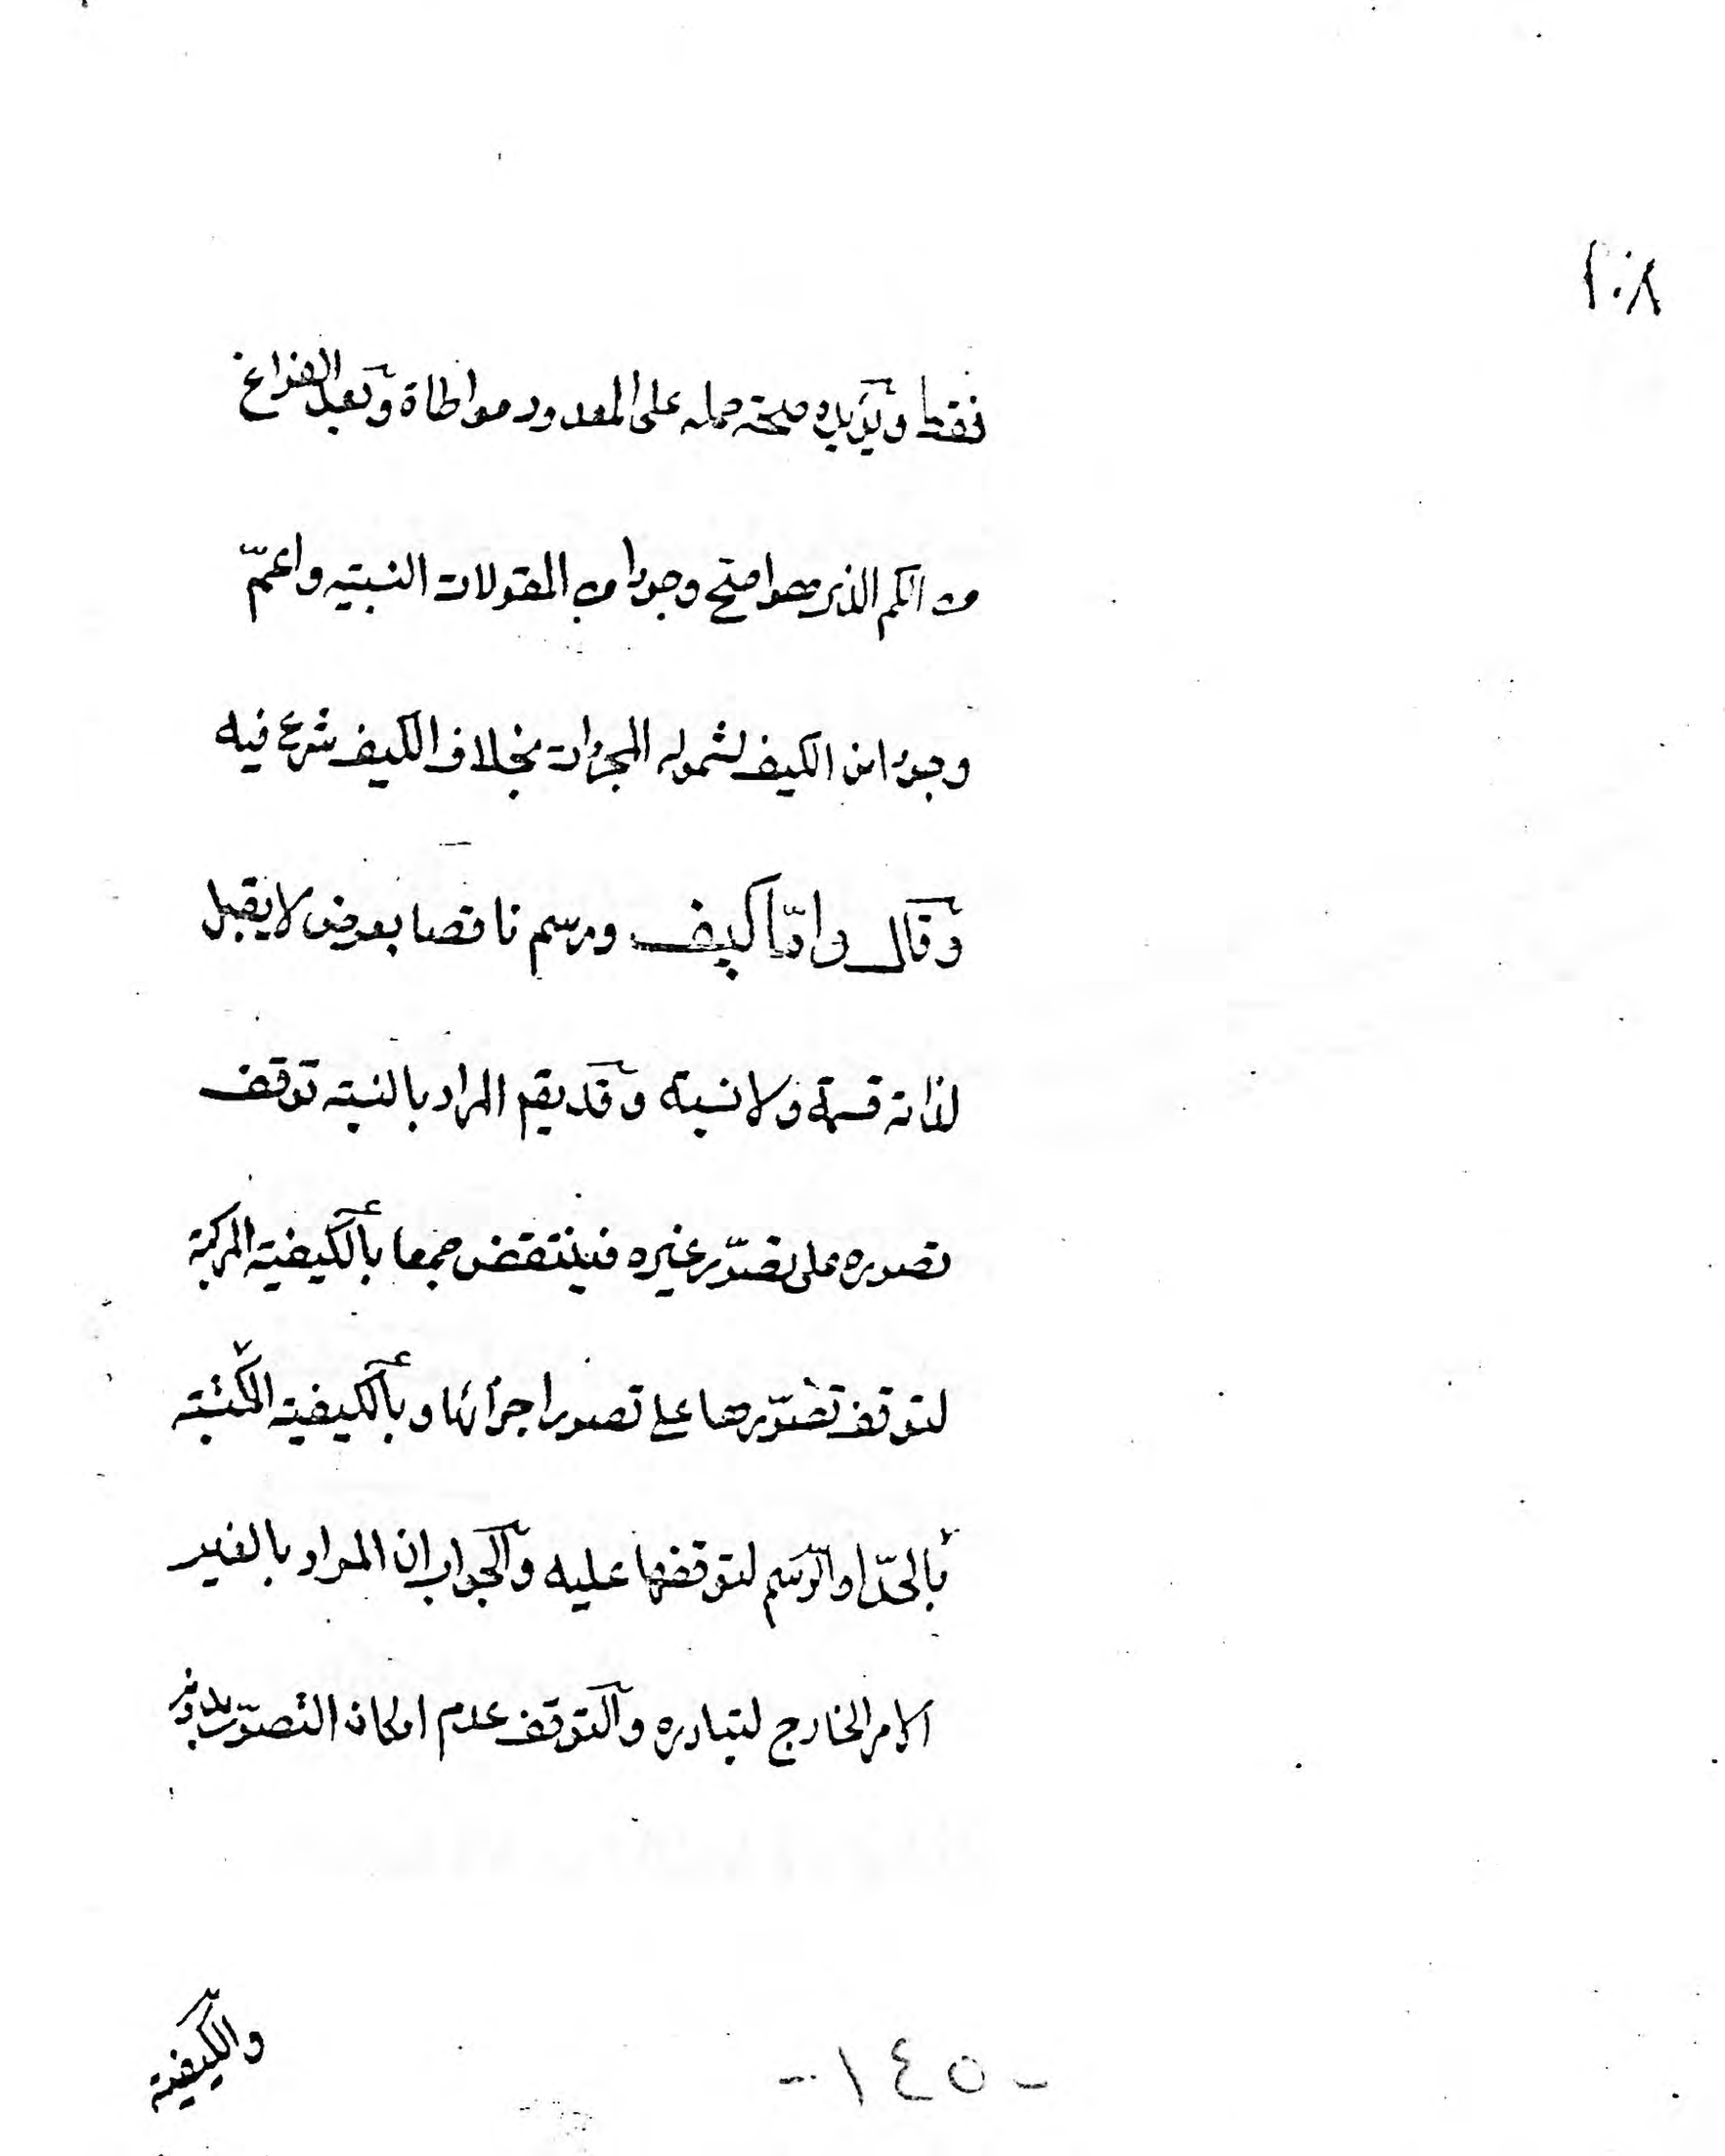 ١٠٨
فقط ويؤيده صحة حمله على المعدود مواطاة وبعد الفراغ
من الكم الذي هو اصح وجودا من المقولات النسبية واعمّ
وجودا من الكيف لشموله المجردات بخلاف الكيف شرع فيه
وقال وامّا كيف ورسم ناقصا بعرض لا يقبل
لذاته قسمة ولا نسبة وقد يقم المراد بالنسبة توقف
تصوره على تصوّر غيره فينتقض جمعا بالكيفية المركبة
لتوقف تصوّرها على تصور اجزائها وبالكيفية المكتسبة
بالحدّ او الرّسم لتوقفها عليه والجواب ان المراد بالغير
الامر الخارج لتبادره والتوقف عدم امكان التصوّر بدونه
والكيفية
-١٤٥-